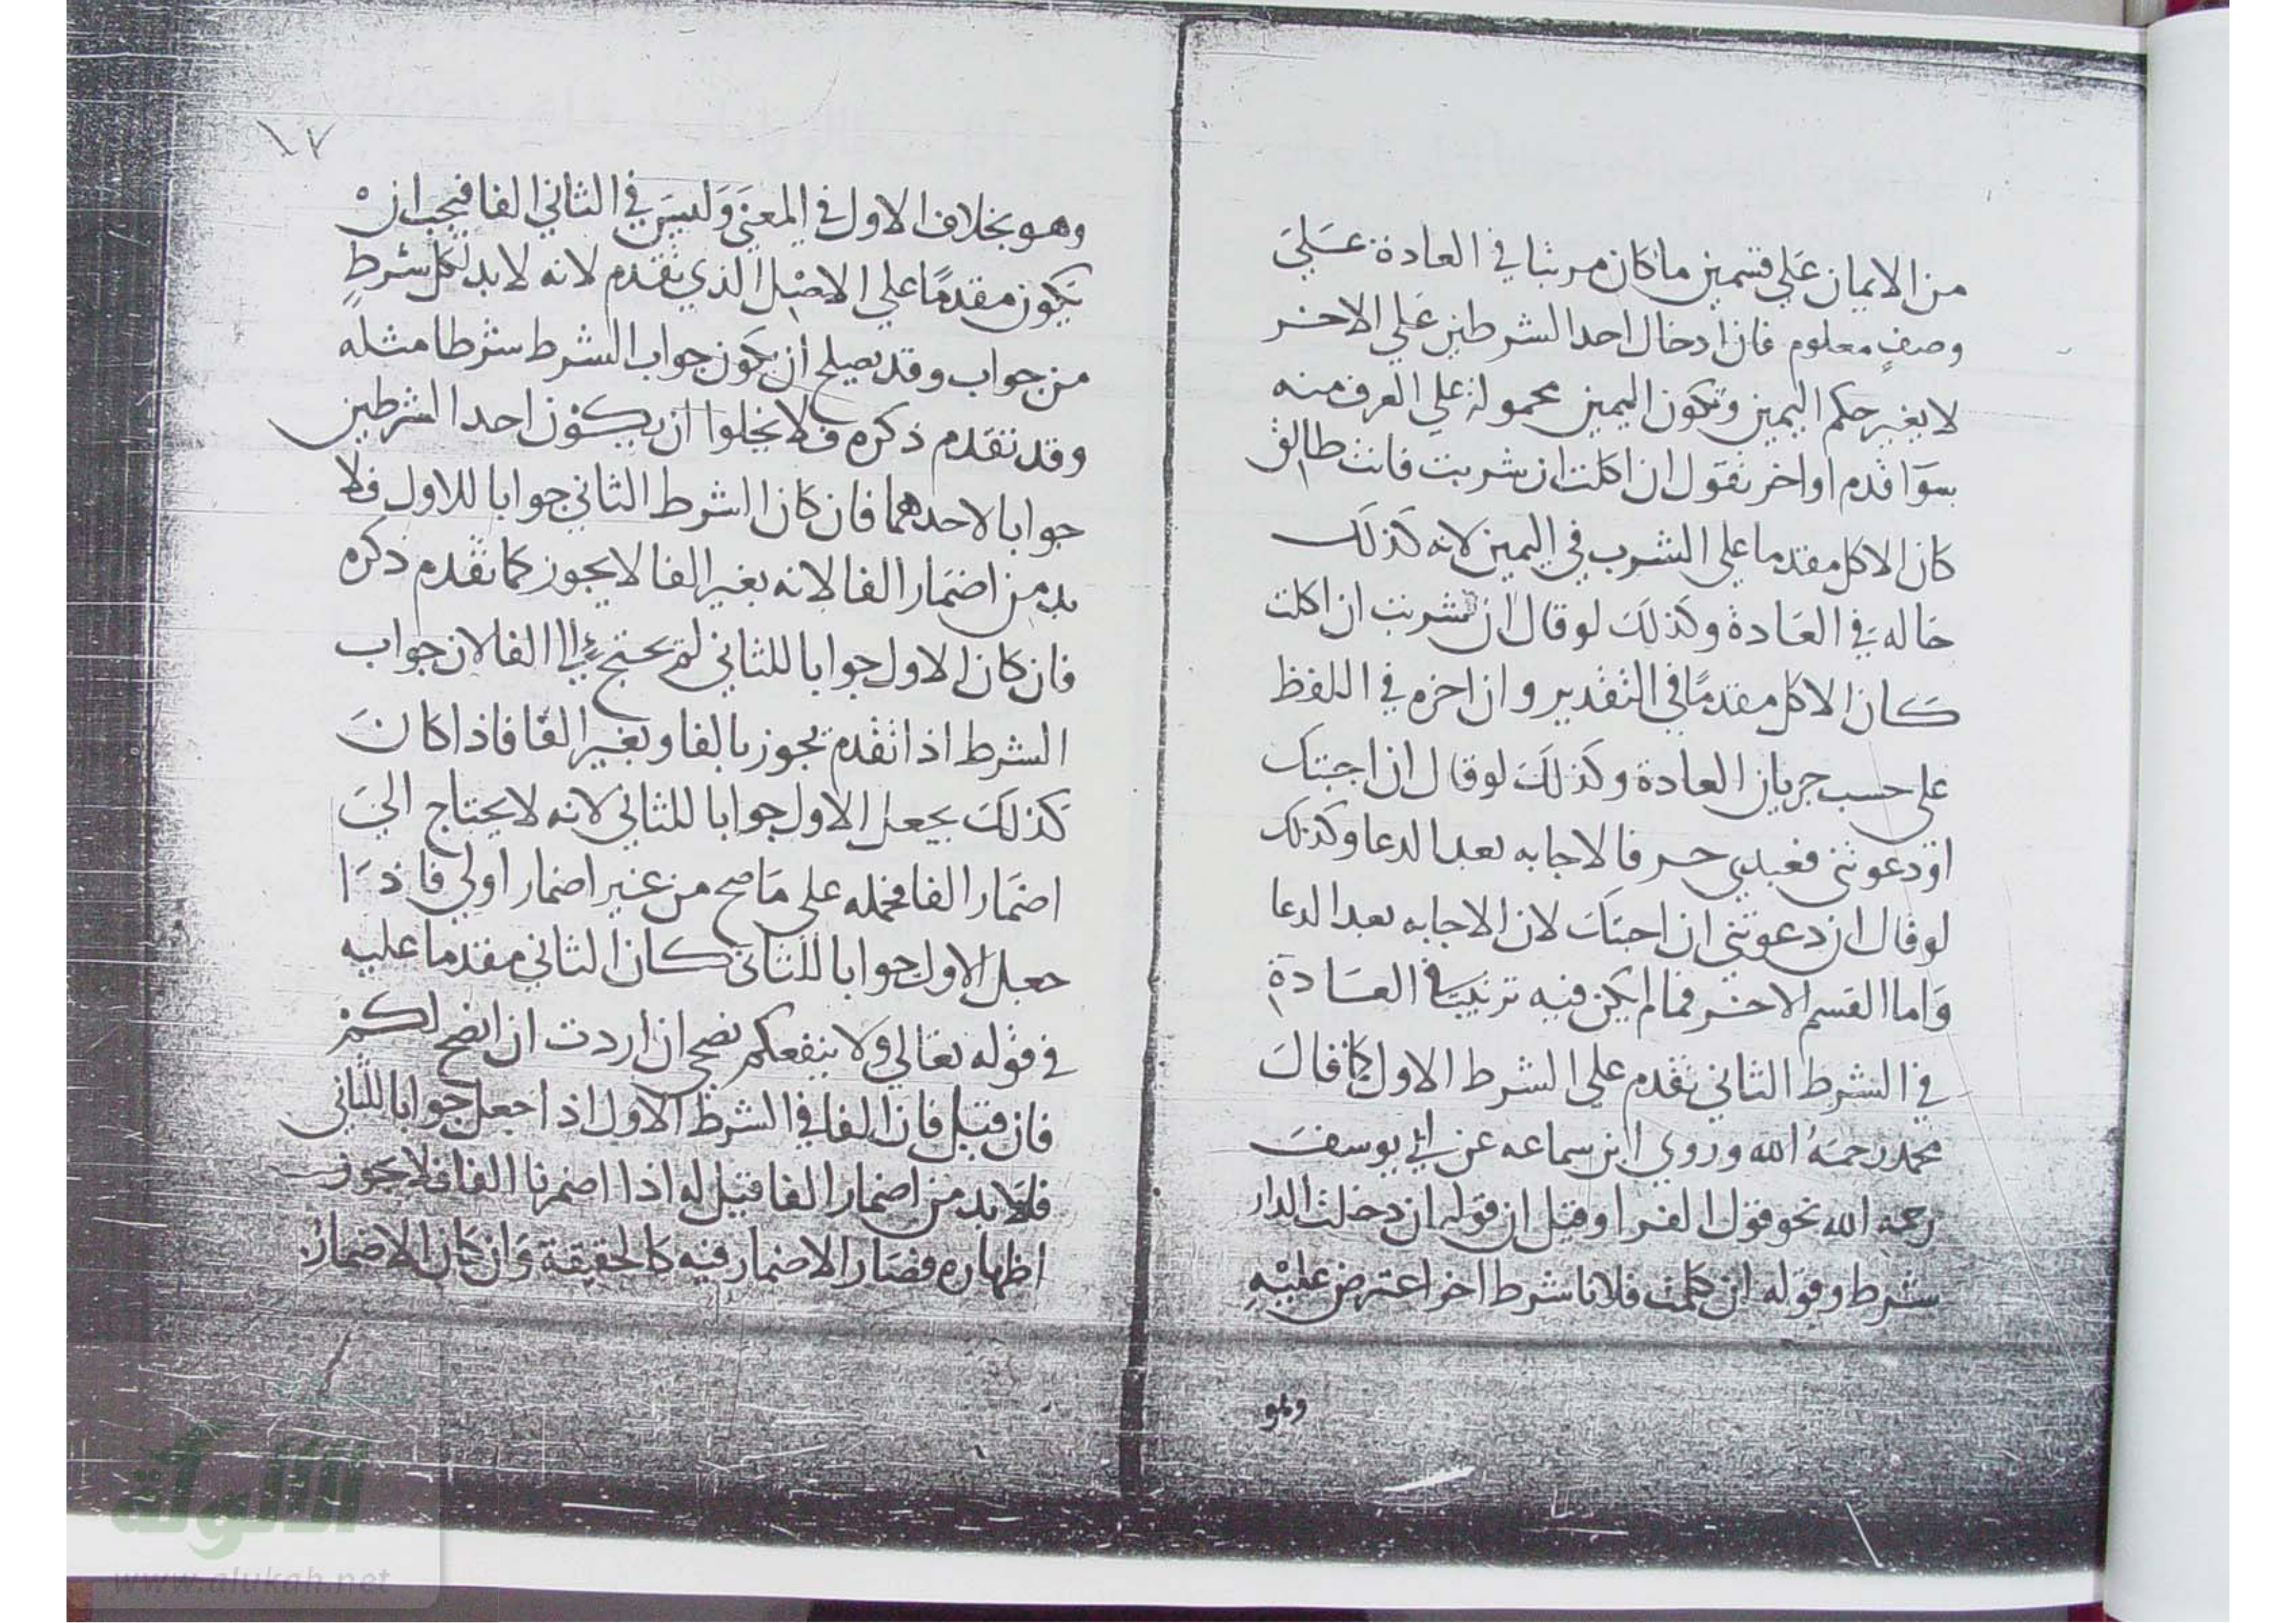 من الايمان علي قسمين ما كان مرتبا في العادة علي
وصف معلوم فان ادخال احد الشرطين علي الاخر
لا يغير حكم اليمين وتكون اليمين محمولة علي العرف منه
سوا قدم او اخر نقول ان اكلت ان شربت فانت طالق
كان الاكل مقدما علي الشرب في اليمين لانه كذلك
حاله في العادة وكذلك لو قال ان شربت ان اكلت
كان الاكل مقدما في التقدير وان اخره في اللفظ
علي حسب جريان العادة وكذلك لو قال ان اجبتك
ان دعوتني فعبدي حر فالاجابه بعد الدعا وكذلك
لو قال ان دعوتني ان اجبتك لان الاجابه بعد الدعا
واما القسم الاخر فما لم يكن فيه ترتيب في العادة
في الشرط الثاني تقدم علي الشرط الاول كما قال
محمد رحمه الله وروي ابن سماعه عن ابي يوسف
رحمه الله نحو قول الفرا وقيل ان قوله ان دخلت الدار
شرط وقوله ان كلمت فلانا شرط اخر اعترض عليه
وهو
١٧
وهو بخلاف الاول في المعني وليس في الثاني الفا فيجب ان
يكون مقدما علي الاصل الذي تقدم لانه لا بد لكل شرط
من جواب وقد يصلح ان يكون جواب الشرط شرطا مثله
وقد تقدم ذكره فلا يخلوا ان يكون احد الشرطين
جوابا لاحدهما فان كان الشرط الثاني جوابا للاول فلا
بد من اضمار الفا لانه بغير الفا لا يجوز كما تقدم ذكره
فان كان الاول جوابا للثاني لم يحتج الي الفا لان جواب
الشرط اذا تقدم يجوز بالفا وبغير الفا فاذا كان
كذلك يجعل الاول جوابا للثاني لانه لا يحتاج الي
اضمار الفا فحمله علي ما صح من غير اضمار اولي فاذا
جعل الاول جوابا للثاني كان الثاني مقدما عليه
في قوله تعالي ولا ينفعكم نصحي ان اردت ان انصح لكم
فان قيل فان الفا في الشرط الاول اذا جعل جوابا للثاني
فلا بد من اضمار الفا قيل له اذا اضمرنا الفا فلا يجوز
اظهاره فصار الاضمار فيه كالحقيقة وان كان الاضمار
الألوكة
www.alukah.net